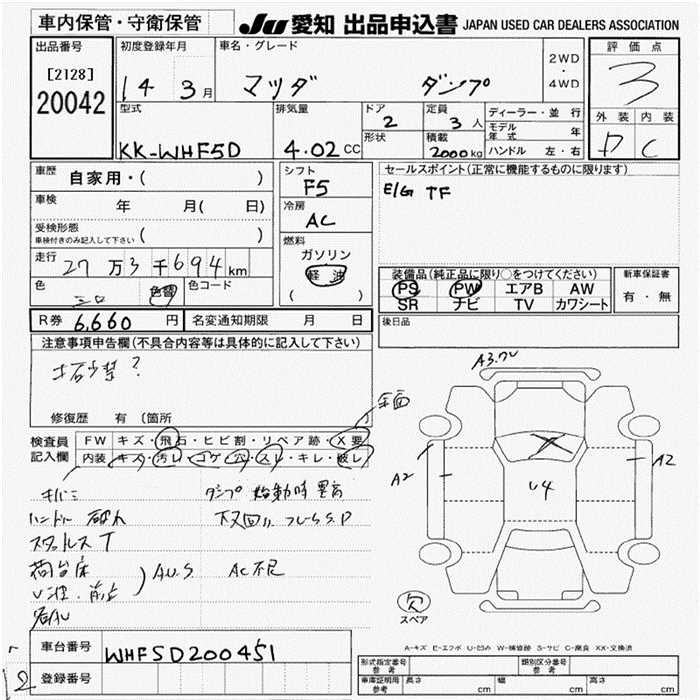 車内保管・守衛保管
JU 愛知 出品申込書 JAPAN USED CAR DEALERS ASSOCIATION
出品番号
[2128]
20042
初度登録年月
14 3月
車名・グレード
マツダ ダンプ
2WD
・
4WD
評価点
3
外装 内装
D C
型式
KK-WHF5D
排気量
4.02 CC
ドア
2
形状
定員
3人
積載
2000kg
ディーラー・並行
モデル年式 年
ハンドル 左・右
車歴 自家用・( )
車検 年 月( 日)
受検形態
車検付きのみ記入して下さい ( )
走行 27万3千694km
色 色替 色コード
シフト
F5
冷房
AC
燃料
ガソリン
軽油
( )
セールスポイント(正常に機能するものに限ります)
E/G TF
装備品(純正品に限り○をつけてください)
PS PW エアB AW
SR ナビ TV カワシート
新車保証書
有・無
R券 6,660円 名変通知期限 月 日
後日品
注意事項申告欄(不具合内容等は具体的に記入して下さい)
土砂禁?
修復歴 有 〔箇所
検査員
記入欄
FW キズ・飛石・ヒビ割・リペア跡・X要
内装 キズ・汚レ・コゲ・穴・スレ・キレ・破レ
全面
キバミ
ハンドル 破れ
スタットレスT
荷台床
AU.S
ダンプ 始動時
下回り フレームS.P
AC不良
A3.U
A2
A2
U4
X
欠
スペア
A-キズ E-エクボ U-凹み W-補修跡 S-サビ C-腐食 XX-交換済
車台番号 WHF5D200451
登録番号
型式指定番号
参考
類別区分番号
参考
車庫証明用
参考
長さ cm 幅 cm 高さ cm